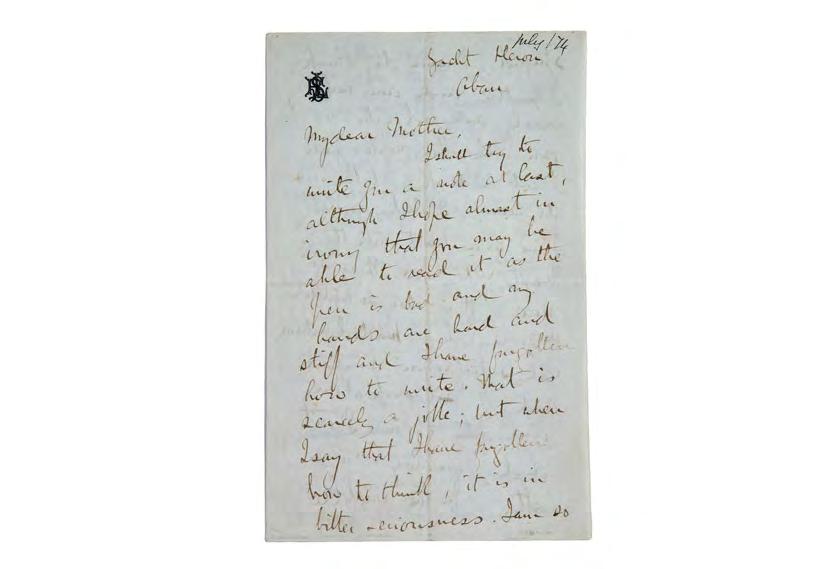 July /74
Yacht Heron
Oban
My dear Mother,
I shall try to
write you a note at least,
although I hope almost in
irony that you may be
able to read it, as the
pen is bad and my
hands are hard and
stiff and I have forgotten
how to write. That is
scarcely a joke; but when
I say that I have forgotten
how to think, it is in
bitter seriousness. I am so